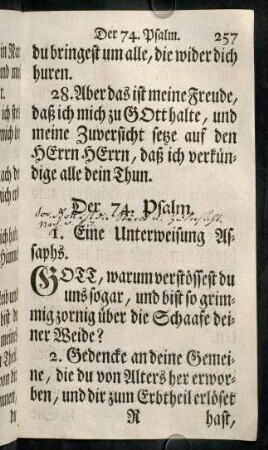 Der 74. Psalm. 257
du bringest um alle, die wider dich
huren.
28. Aber das ist meine Freude,
daß ich mich zu GOtt halte, und
meine Zuversicht setze auf den
HErrn HErrn, daß ich verkün-
dige alle dein Thun.
Der 74. Psalm.
1. Eine Unterweisung As-
saphs.
GOTT, warum verstössest du
uns sogar, und bist so grim-
mig zornig über die Schaafe dei-
ner Weide?
2. Gedencke an deine Gemei-
ne, die du von Alters her erwor-
ben, und dir zum Erbtheil erlöset
R hast,